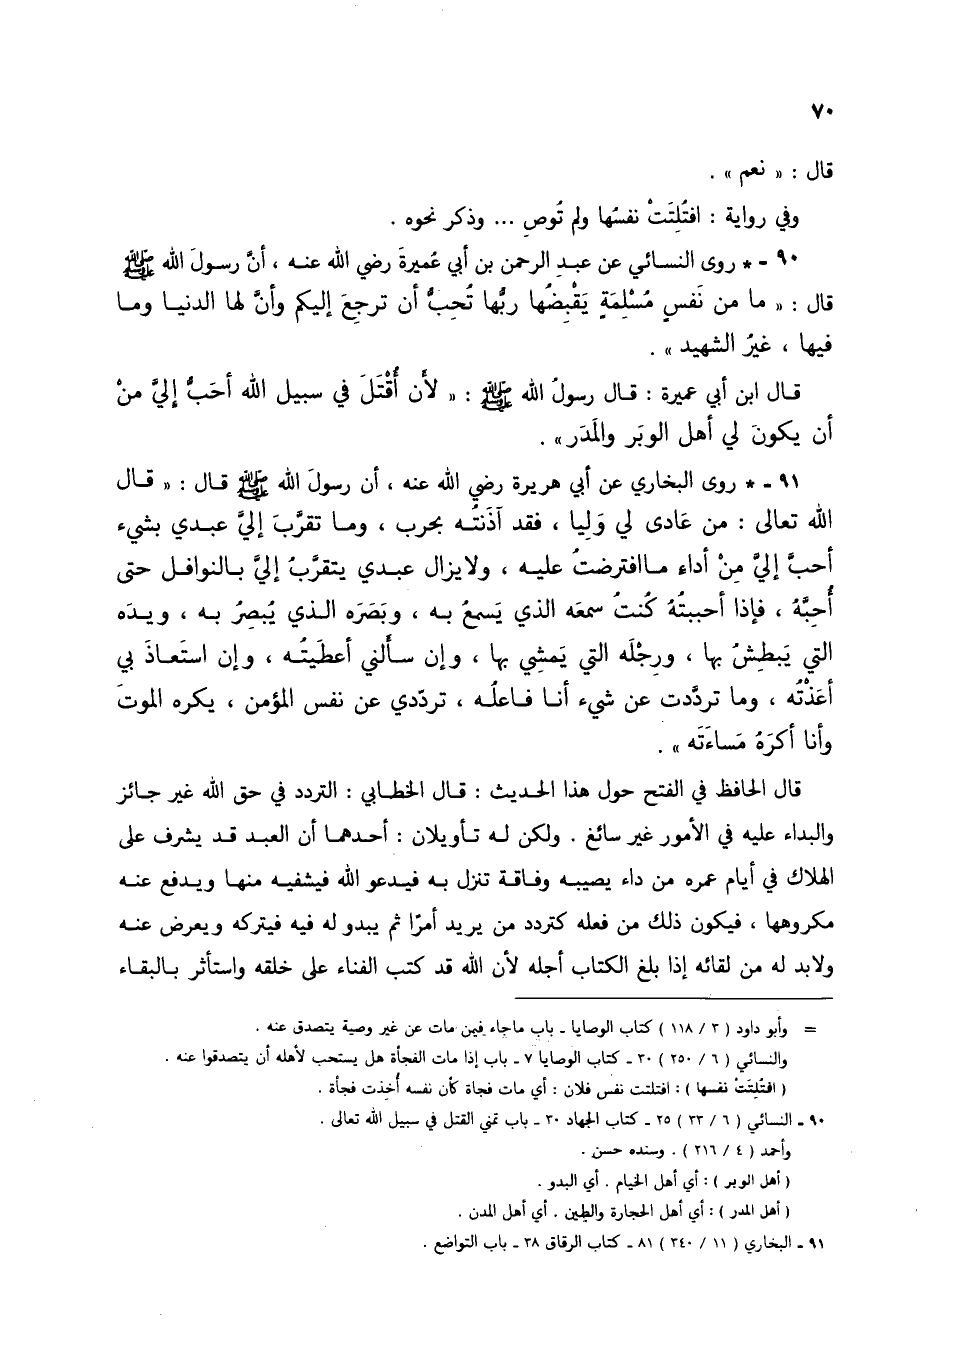 ٧٠
قال : « نعم » .
وفي رواية : افتُلِتَتْ نفسُها ولم تُوصِ ... وذكر نحوه .
٩٠ - * روى النسائي عن عبد الرحمن بن أبي عُميرةَ رضي الله عنه ، أنَّ رسولَ الله ﷺ
قال : « ما من نَفسٍ مُسْلِمَةٍ يَقْبِضُها ربُّها تُحبُّ أن ترجعَ إليكم وأنَّ لها الدنيا وما
فيها ، غيرُ الشهيد » .
قال ابن أبي عميرة : قال رسولُ الله ﷺ : « لأن أُقْتَلَ في سبيل الله أحَبُّ إليَّ منْ
أن يكونَ لي أهل الوبَر والمَدَر» .
٩١ - * روى البخاري عن أبي هريرة رضي الله عنه ، أن رسولَ الله ﷺ قال : « قال
الله تعالى : من عَادى لي وَلِيا ، فقد آذَنتُه بحرب ، وما تقرَّبَ إليَّ عبدي بشيء
أحبَّ إليَّ مِنْ أداء ماافترضتُ عليه ، ولايزال عبدي يتقرَّبُ إليَّ بالنوافل حتى
أُحِبَّهُ ، فإذا أحببتُهُ كُنتُ سمعَه الذي يَسمعُ به ، وبَصَرَه الذي يُبصِرُ به ، ويدَه
التي يَبطِشُ بها ، ورِجْلَه التي يَمشِي بها ، وإن سألني أعطَيتُه ، وإن استَعاذَ بي
أعَذْتُه ، وما تردَّدت عن شيء أنا فاعلُه ، تردّدي عن نفس المؤمن ، يكره الموتَ
وأنا أكرَهُ مَساءَتَه » .
قال الحافظ في الفتح حول هذا الحديث : قال الخطابي : التردد في حق الله غير جائز
والبداء عليه في الأمور غير سائغ . ولكن له تأويلان : أحدهما أن العبد قد يشرف على
الهلاك في أيام عمره من داء يصيبه وفاقة تنزل به فيدعو الله فيشفيه منها ويدفع عنه
مكروهها ، فيكون ذلك من فعله كتردد من يريد أمرًا ثم يبدو له فيه فيتركه ويعرض عنه
ولابد له من لقائه إذا بلغ الكتاب أجله لأن الله قد كتب الفناء على خلقه واستأثر بالبقاء
= وأبو داود ( ٣ / ١١٨ ) كتاب الوصايا - باب ماجاء فيمن مات عن غير وصية يتصدق عنه .
والنسائي ( ٦ / ٢٥٠ ) ٣٠ - كتاب الوصايا ٧ - باب إذا مات الفجأة هل يستحب لأهله أن يتصدقوا عنه .
( افتُلِتَتْ نفسها ) : افتلتت نفس فلان : أي مات فجاة كأن نفسه أُخِذت فجأة .
٩٠ - النسائي ( ٦ / ٣٣ ) ٢٥ - كتاب الجهاد ٣٠ - باب تمني القتل في سبيل الله تعالى .
وأحمد ( ٤ / ٢١٦ ) . وسنده حسن .
( أهل الوبر ) : أي أهل الخيام . أي البدو .
( أهل المدر ) : أي أهل الحجارة والطين . أي أهل المدن .
٩١ - البخاري ( ١١ / ٣٤٠ ) ٨١ - كتاب الرقاق ٣٨ - باب التواضع .